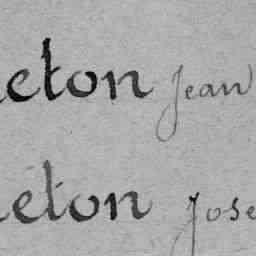 eton Jean
eton Jose